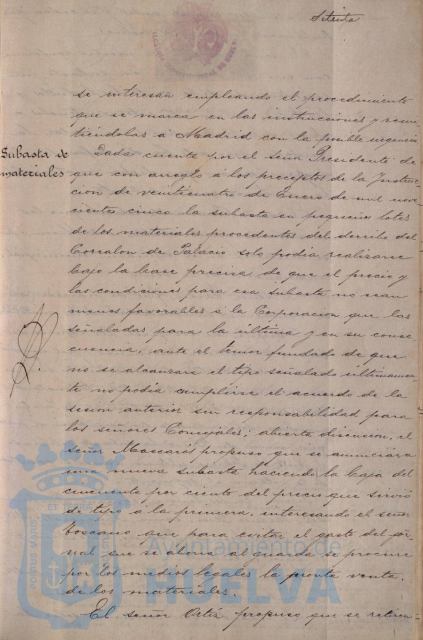 Setenta
se interesan empleando el procedimiento
que se marca en las instrucciones y remi-
tiéndolas á Madrid con la posible urgencia
Subasta de
materiales
Dada cuenta por el Señor Presidente de
que con arreglo á los preceptos de la Instruc-
cion de veinticuatro de Enero de mil nove-
cientos cinco la subasta en pequeños lotes
de los materiales procedentes del derribo del
Corralon de Palacio solo podia realizarse
bajo la base precisa de que el precio y
las condiciones para esa subasta no sean
menos favorables á la Corporacion que las
señaladas para la última y en su conse
cuencia, ante el temor fundado de que
no se alcanzase el tipo señalado ultimamen-
te no podia cumplirse el acuerdo de la
sesion anterior sin responsabilidad para
los señores Concejales; abierta discusion, el
señor Mascarós propuso que se anunciara
una nueva subasta haciendo la baja del
cincuenta por ciento del precio que sirvió
de tipo á la primera, interesando el señor
Toscano que para evitar el gasto del jor
nal que se abona al guarda se procure
por los medios legales la pronta venta
de los materiales.
El señor Ortiz propuso que se
Ayuntamiento de
HUELVA